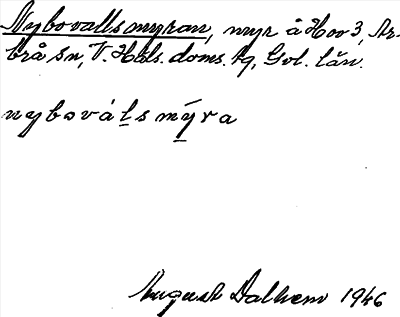 Nybovallsmyran, myr å Hov 3, Ar-
brå sn, V. Häls. doms. tg, Gvl. län.
nybováḻsmýra
August Dalhem 1946